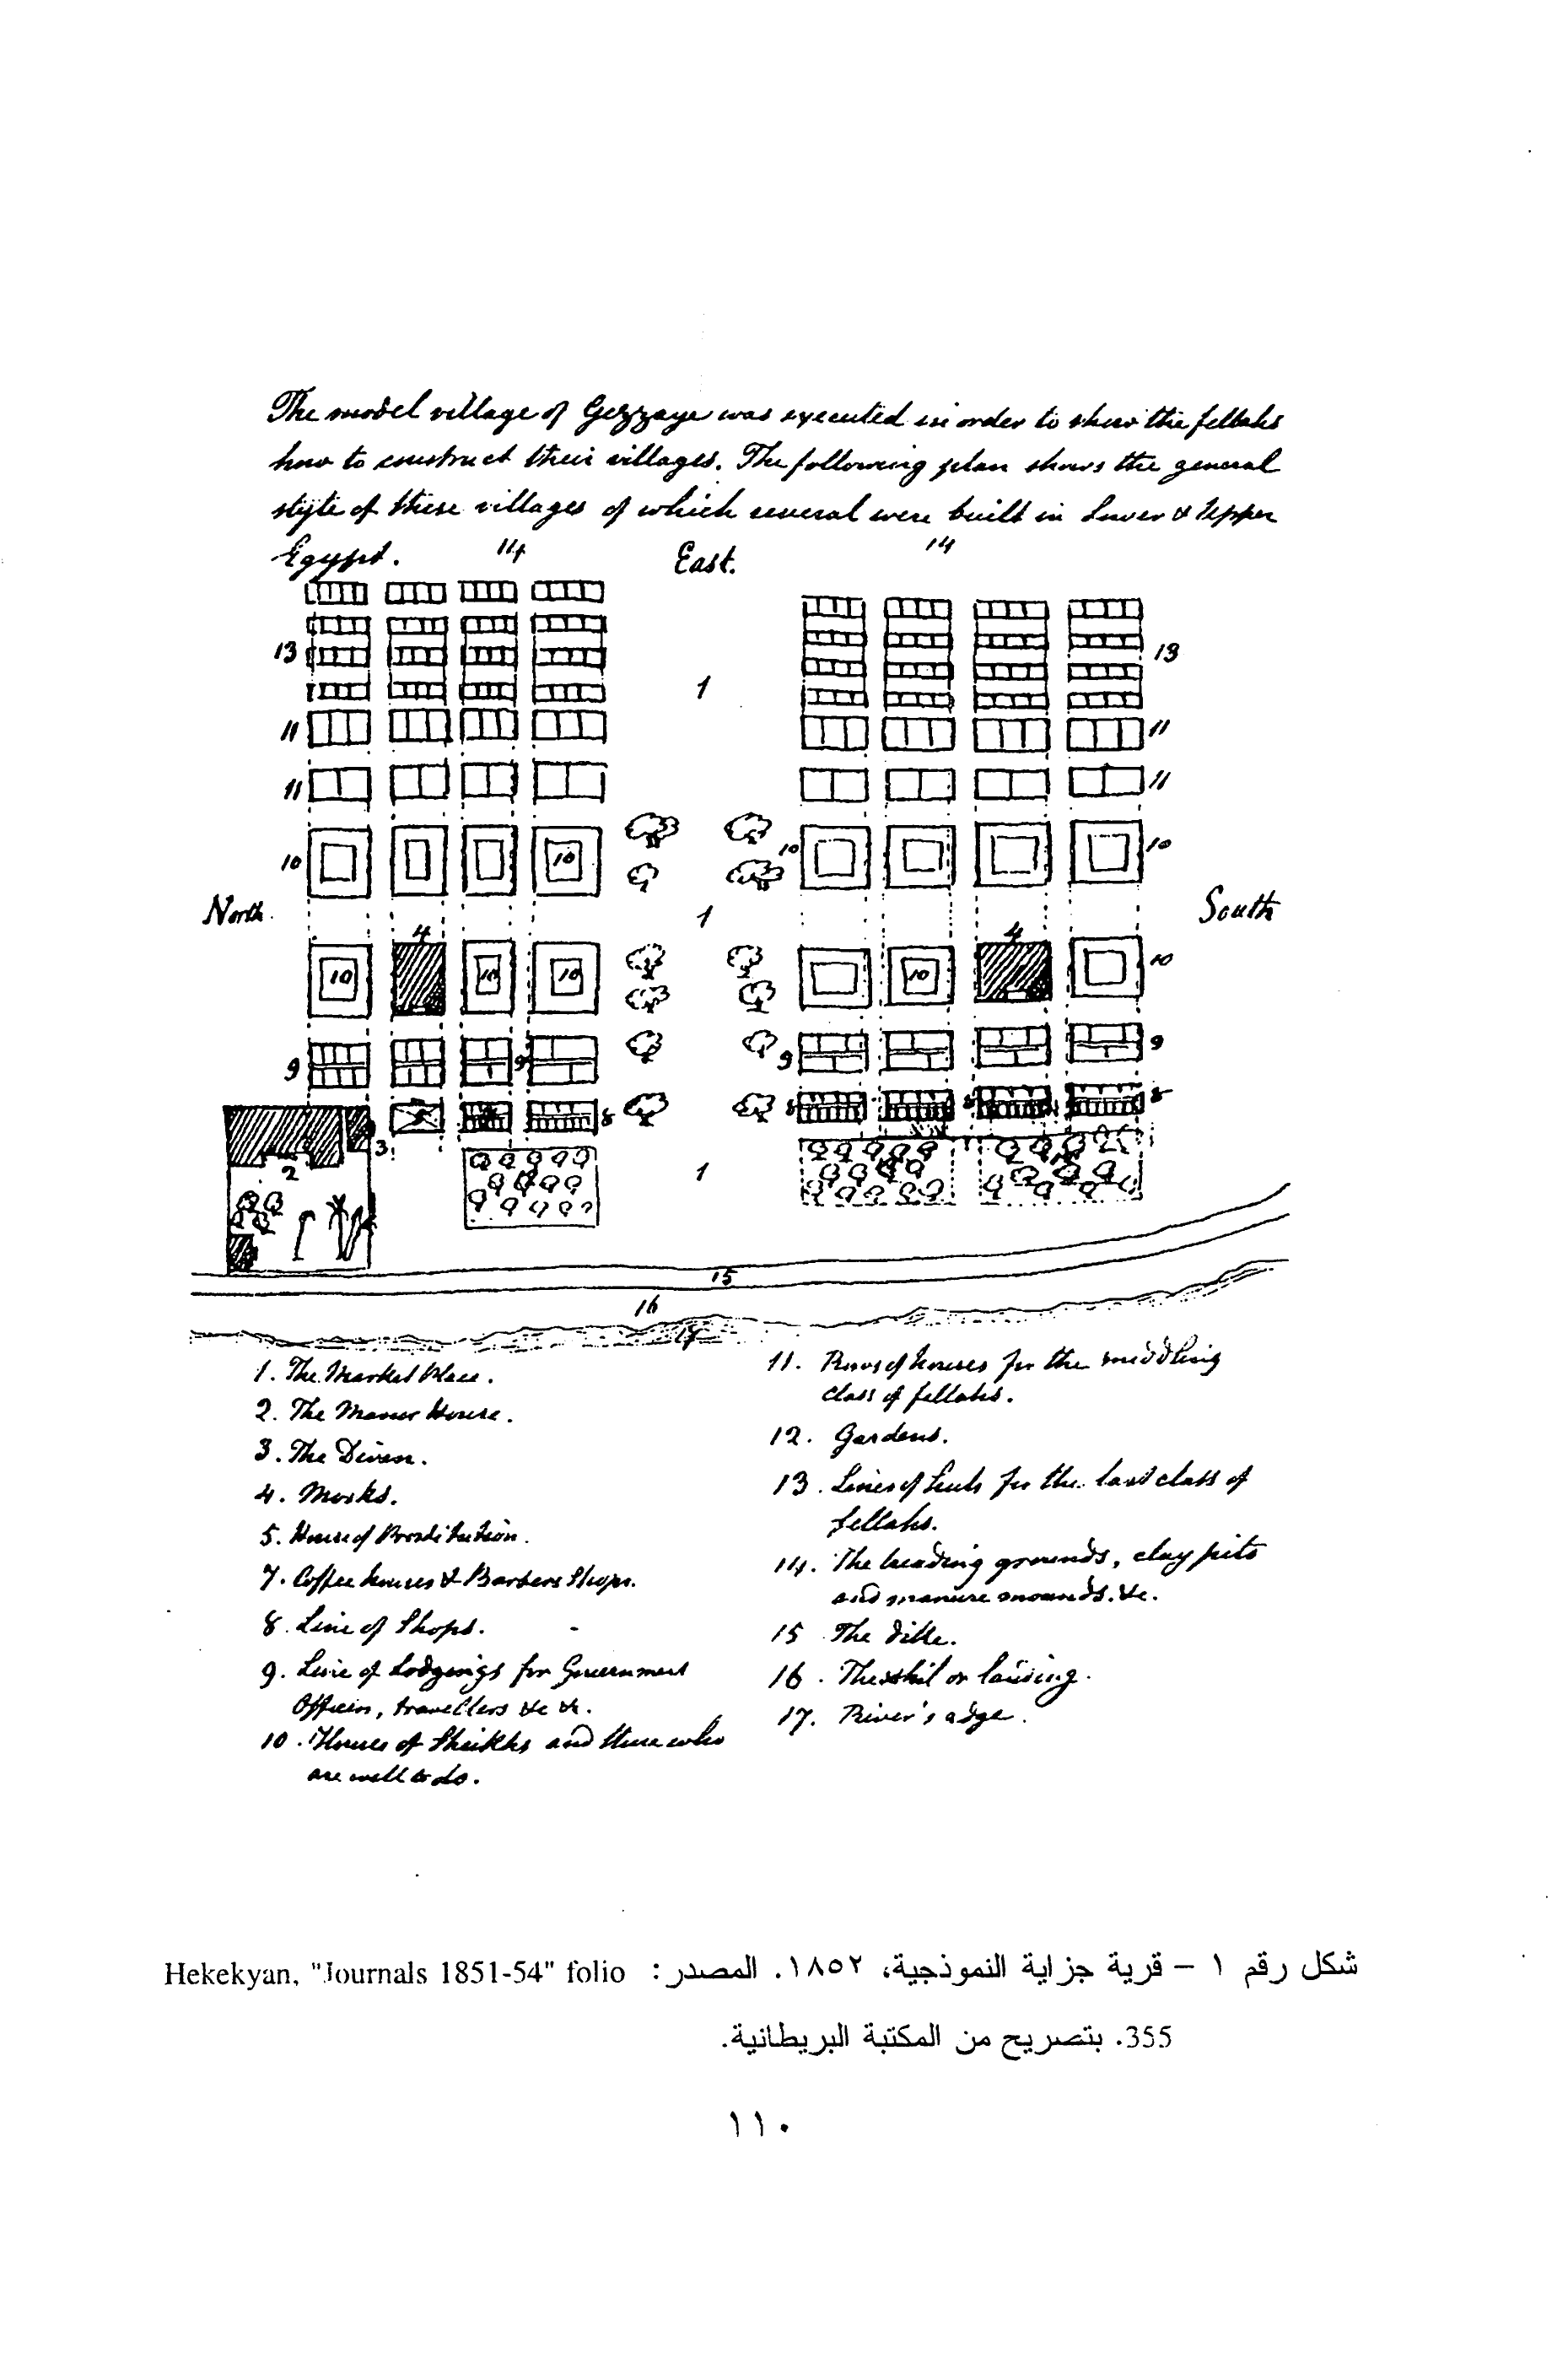 The model village of Gezzaye was executed in order to shew the fellahs
how to construct their villages. The following plan shows the general
style of these villages of which several were built in Lower & Upper
Egypt.
14
East.
14
13
1
13
11
11
11
11
10
10
10
10
North
1
South
4
4
10
10
10
10
10
9
9
9
9
8
8
8
8
3
2
1
15
16
17
1. The Market Place.
2. The Manor House.
3. The Divan.
4. Mosks.
5. House of Prostitution.
7. Coffee houses & Barbers Shops.
8. Line of Shops.
9. Line of Lodgings for Government
Officers, travellers &c &c.
10. Houses of Sheikhs and those who
are well to do.
11. Rows of houses for the middling
class of fellahs.
12. Gardens.
13. Lines of huts for the last class of
fellahs.
14. The grounds, clay pits
and manure mounds. &c.
15 The dike.
16. The or landing.
17. River's edge.
شكل رقم ١ – قرية جزاية النموذجية، ١٨٥٢. المصدر: Hekekyan, "Journals 1851-54" folio
355. بتصريح من المكتبة البريطانية.
١١٠